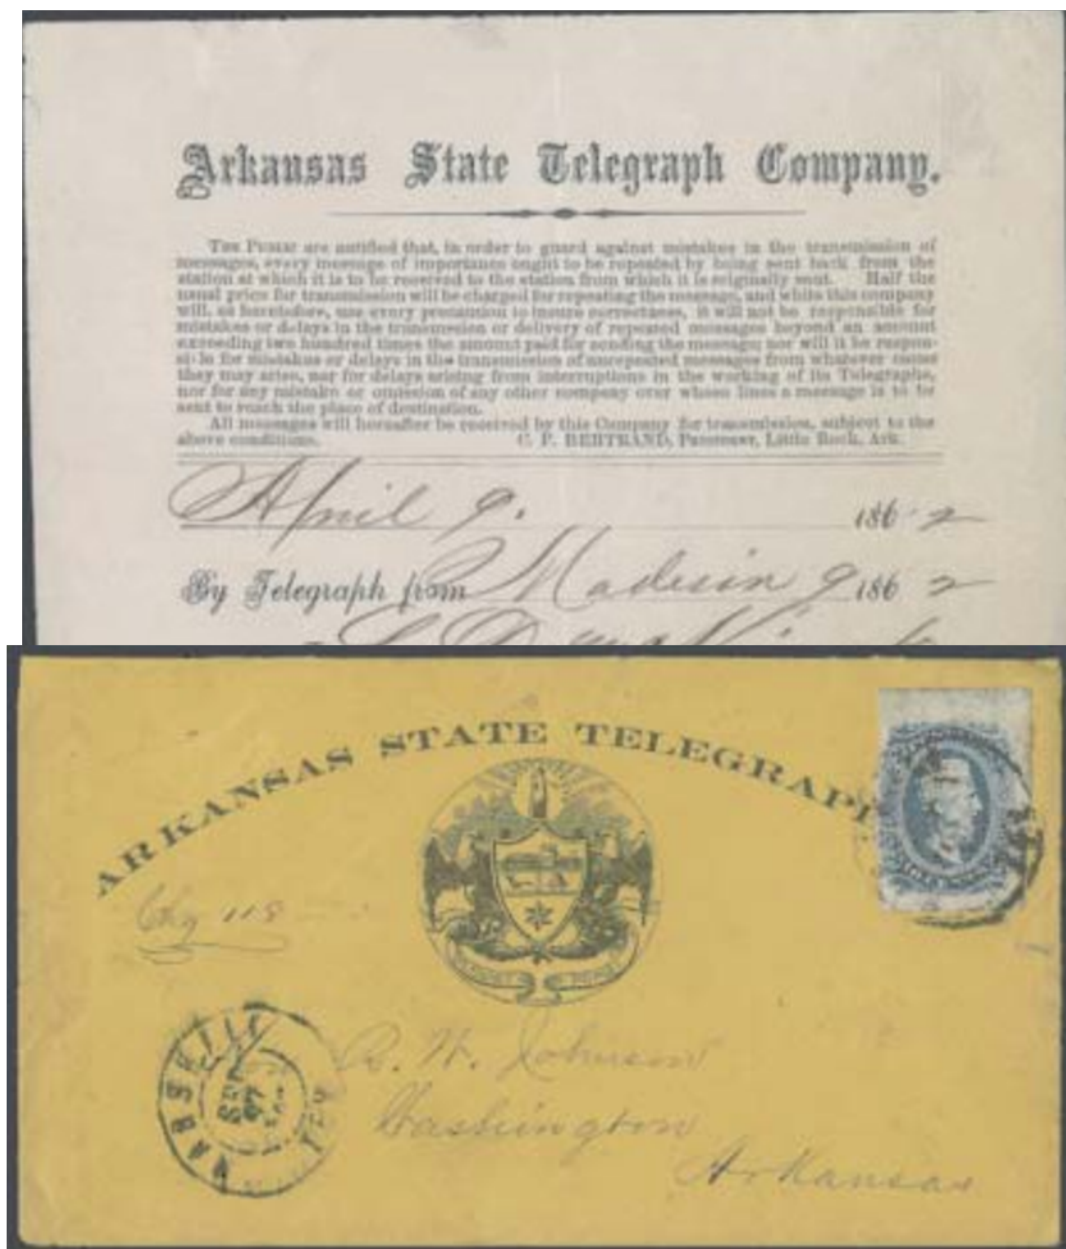 Arkansas State Telegraph Company.
THE PUBLIC are notified that, in order to guard against mistakes in the transmission of
messages, every message of importance ought to be repeated by being sent back from the
station at which it is to be received to the station from which it is originally sent. Half the
usual price for transmission will be charged for repeating the message, and while this company
will, as heretofore, use every precaution to insure correctness, it will not be responsible for
mistakes or delays in the transmission or delivery of repeated messages beyond an amount
exceeding two hundred times the amount paid for sending the message; nor will it be respon-
sible for mistakes or delays in the transmission of unrepeated messages from whatever cause
they may arise, nor for delays arising from interruptions in the working of its Telegraphs,
nor for any mistake or omission of any other company over whose lines a message is to be
sent to reach the place of destination.
All messages will hereafter be received by this Company for transmission, subject to the
above conditions. C. P. BERTRAND, President, Little Rock, Ark.
April 9. 1862
By Telegraph from Madison 9 1862
ARKANSAS STATE TELEGRAPH
Chg 118
NASHVILLE
TEN
R. W. Johnson
Washington
Arkansas